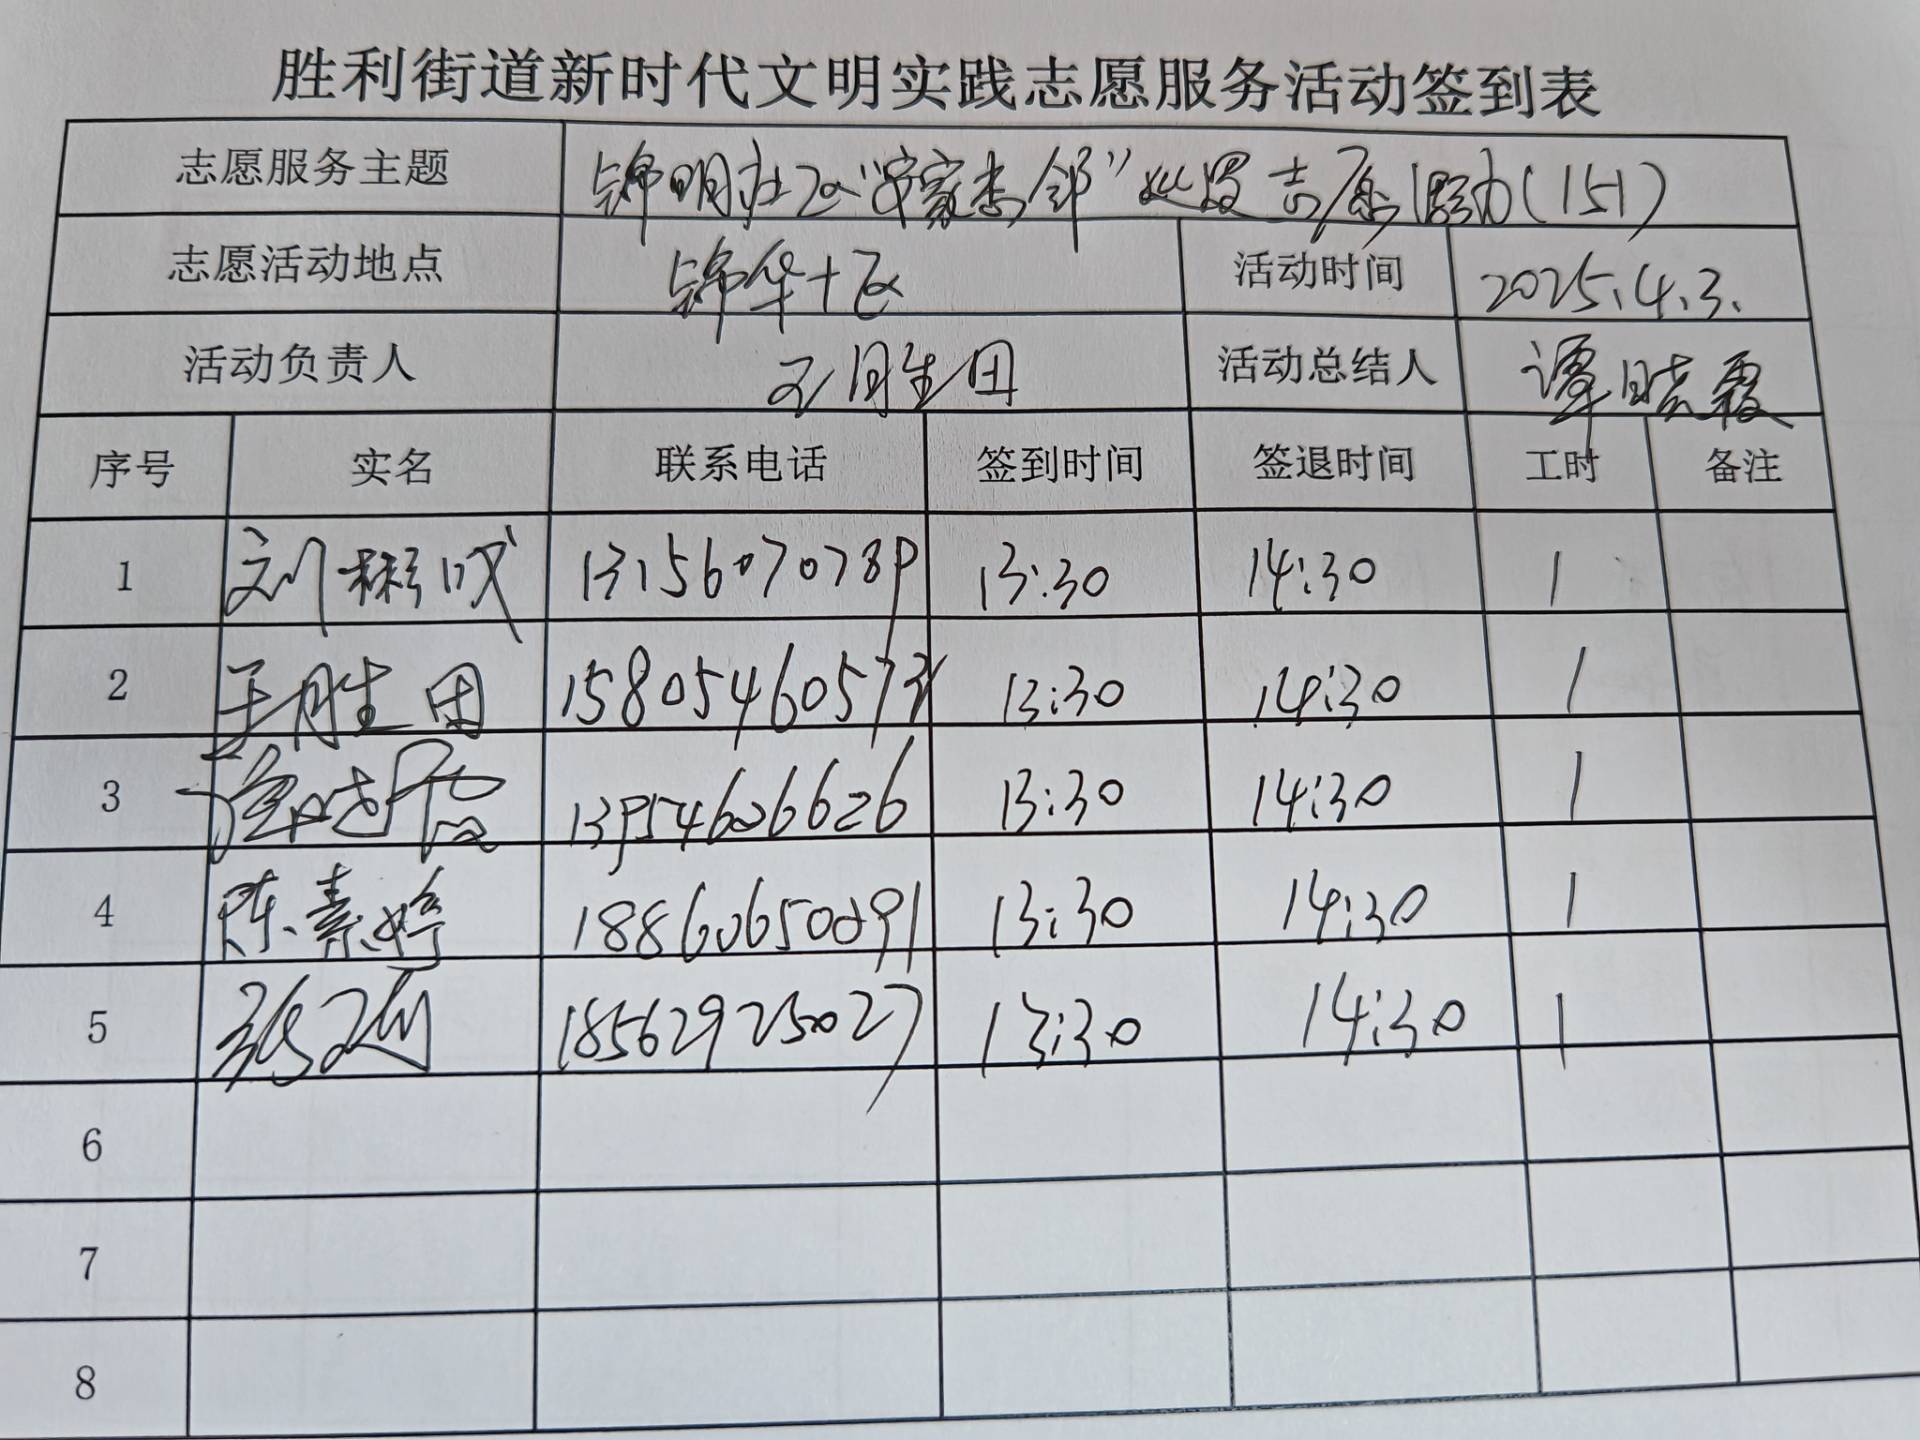 胜利街道新时代文明实践志愿服务活动签到表
志愿服务主题 锦明社区“安家杰邻” 志愿活动(151)
志愿活动地点 锦华十区 活动时间 2025.4.3.
活动负责人 王胜田 活动总结人 谭晓霞
序号 实名 联系电话 签到时间 签退时间 工时 备注
1 刘彬成 13156070789 13:30 14:30 1
2 王胜田 15805460573 13:30 14:30 1
3 谭晓霞 13954606626 13:30 14:30 1
4 陈素婷 18860650091 13:30 14:30 1
5 张 18562925027 13:30 14:30 1
6
7
8